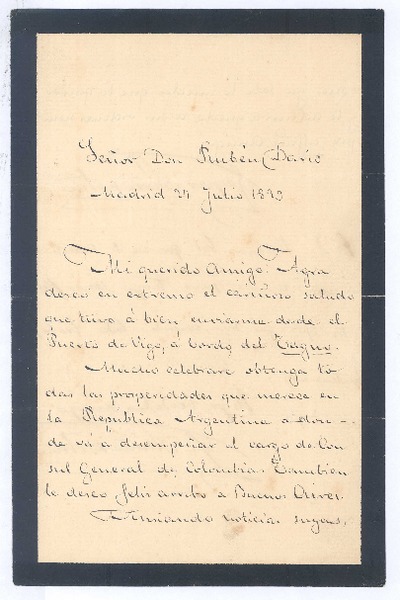 Señor Don Rubén Dario
Madrid 24 Julio 1893
Mi querido amigo: Agra
deseo en extremo el cariñoso saludo
que tuvo á bien enviarme desde el
Puerto de Vigo, á bordo del Tagus.
Mucho celebraré obtenga to
das las prosperidades que merece en
la República Argentina a don-
de vá á desempeñar el cargo de Con
sul General de Colombia. Tambien
le deseo feliz arribo a Buenos Aires.
noticias suyas,